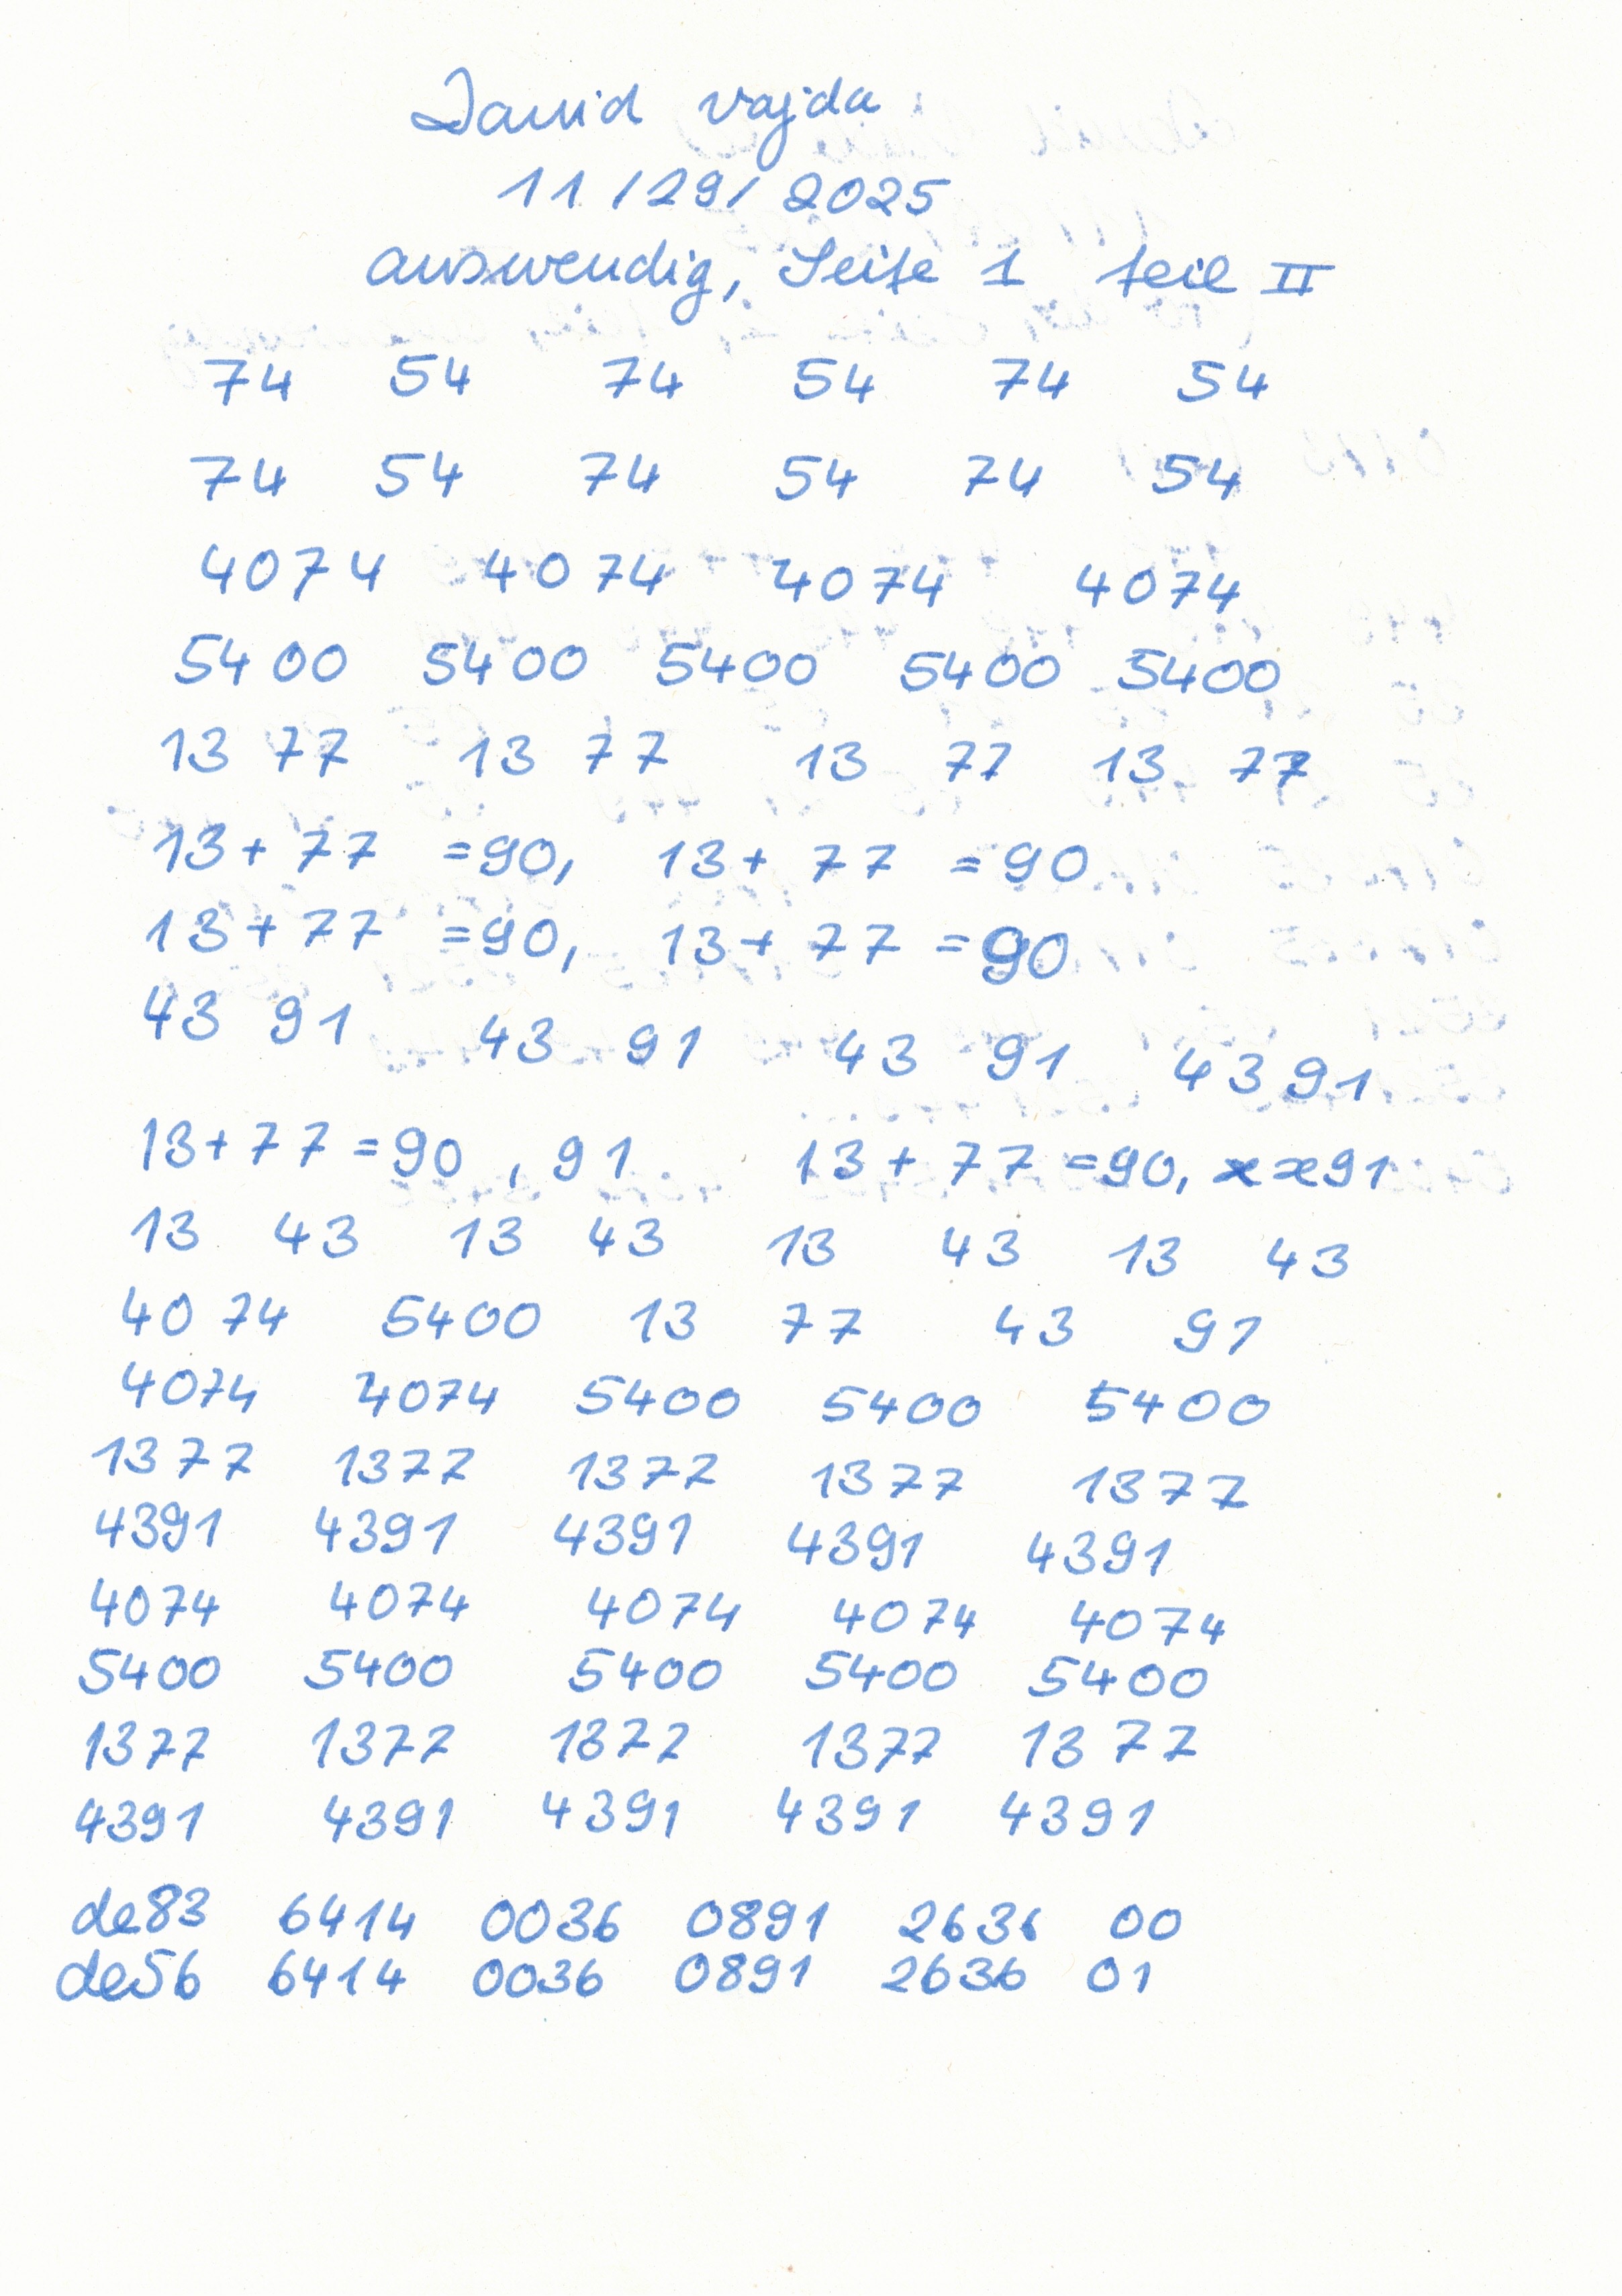 David Vajda
11/29/2025
auswendig, Seite 1 teil II
74 54 74 54 74 54
74 54 74 54 74 54
4074 4074 4074 4074
5400 5400 5400 5400 5400
13 77 13 77 13 77 13 77
13+ 77 =90, 13+ 77 =90
13+ 77 =90, 13+ 77 =90
43 91 43 91 43 91 43 91
13+77=90, 91 13+77=90, x x91
13 43 13 43 13 43 13 43
40 74 5400 13 77 43 91
4074 4074 5400 5400 5400
1377 1377 1377 1377 1377
4391 4391 4391 4391 4391
4074 4074 4074 4074 4074
5400 5400 5400 5400 5400
1377 1377 1377 1377 1377
4391 4391 4391 4391 4391
de83 6414 0036 0891 2636 00
de56 6414 0036 0891 2636 01